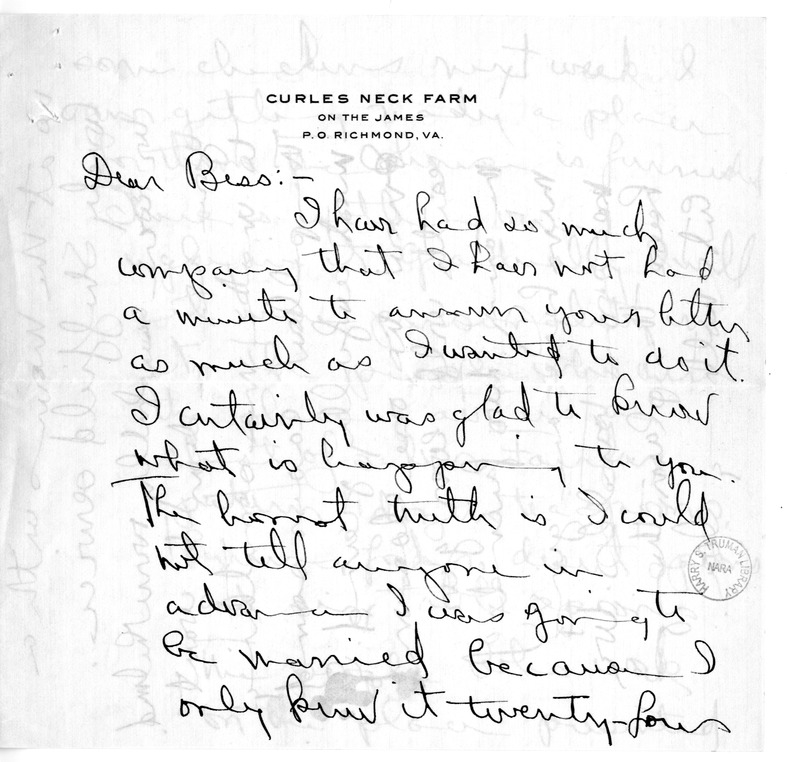 CURLES NECK FARM
ON THE JAMES
P.O. RICHMOND, VA.
Dear Bess:-
I have had so much
company that I have not had
a minute to answer your letter
as much as I wanted to do it.
I certainly was glad to know
what is happening to you.
The honest truth is I could
not tell anyone in
advance I was going to
be married because I
only knew it twenty-four
HARRY S. TRUMAN LIBRARY
NARA